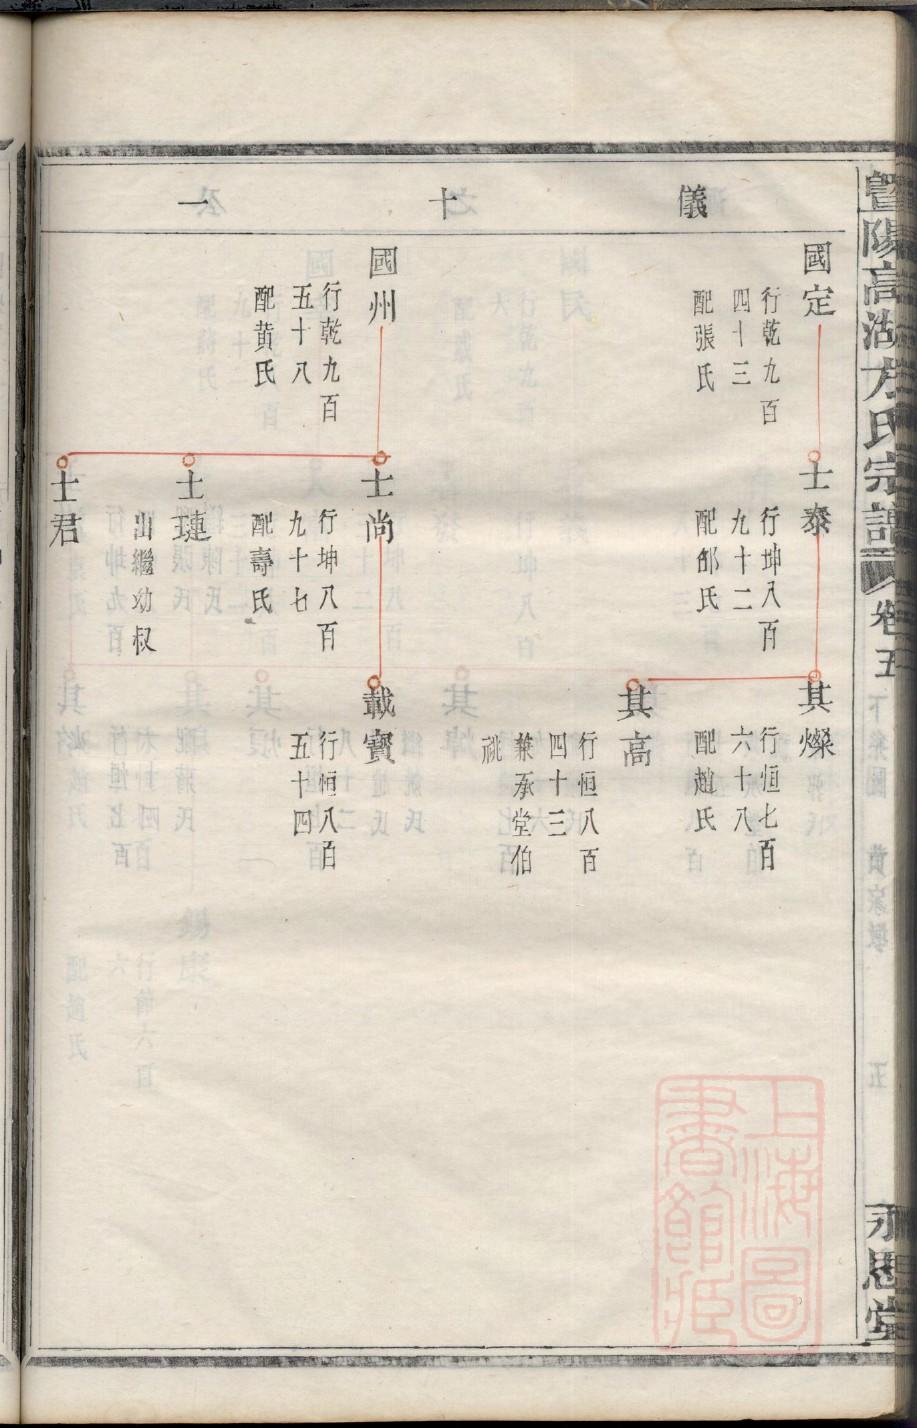 暨陽高湖方氏宗譜
卷五
永思堂
儀十一
國定
行乾九百
四十三
配張氏
士泰
行坤八百
九十二
配邰氏
其燦
行恒七百
六十八
配趙氏
其高
行恒八百
四十三
兼承堂伯
祧
國州
行乾九百
五十八
配黄氏
士尚
行坤八百
九十七
配壽氏
載寶
行恒八百
五十四
士璉
出繼幼叔
士君
上海圖
書館藏